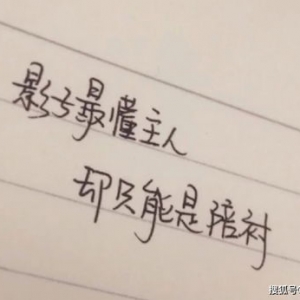 影子最懂主人
却只能是陪衬
搜狐号